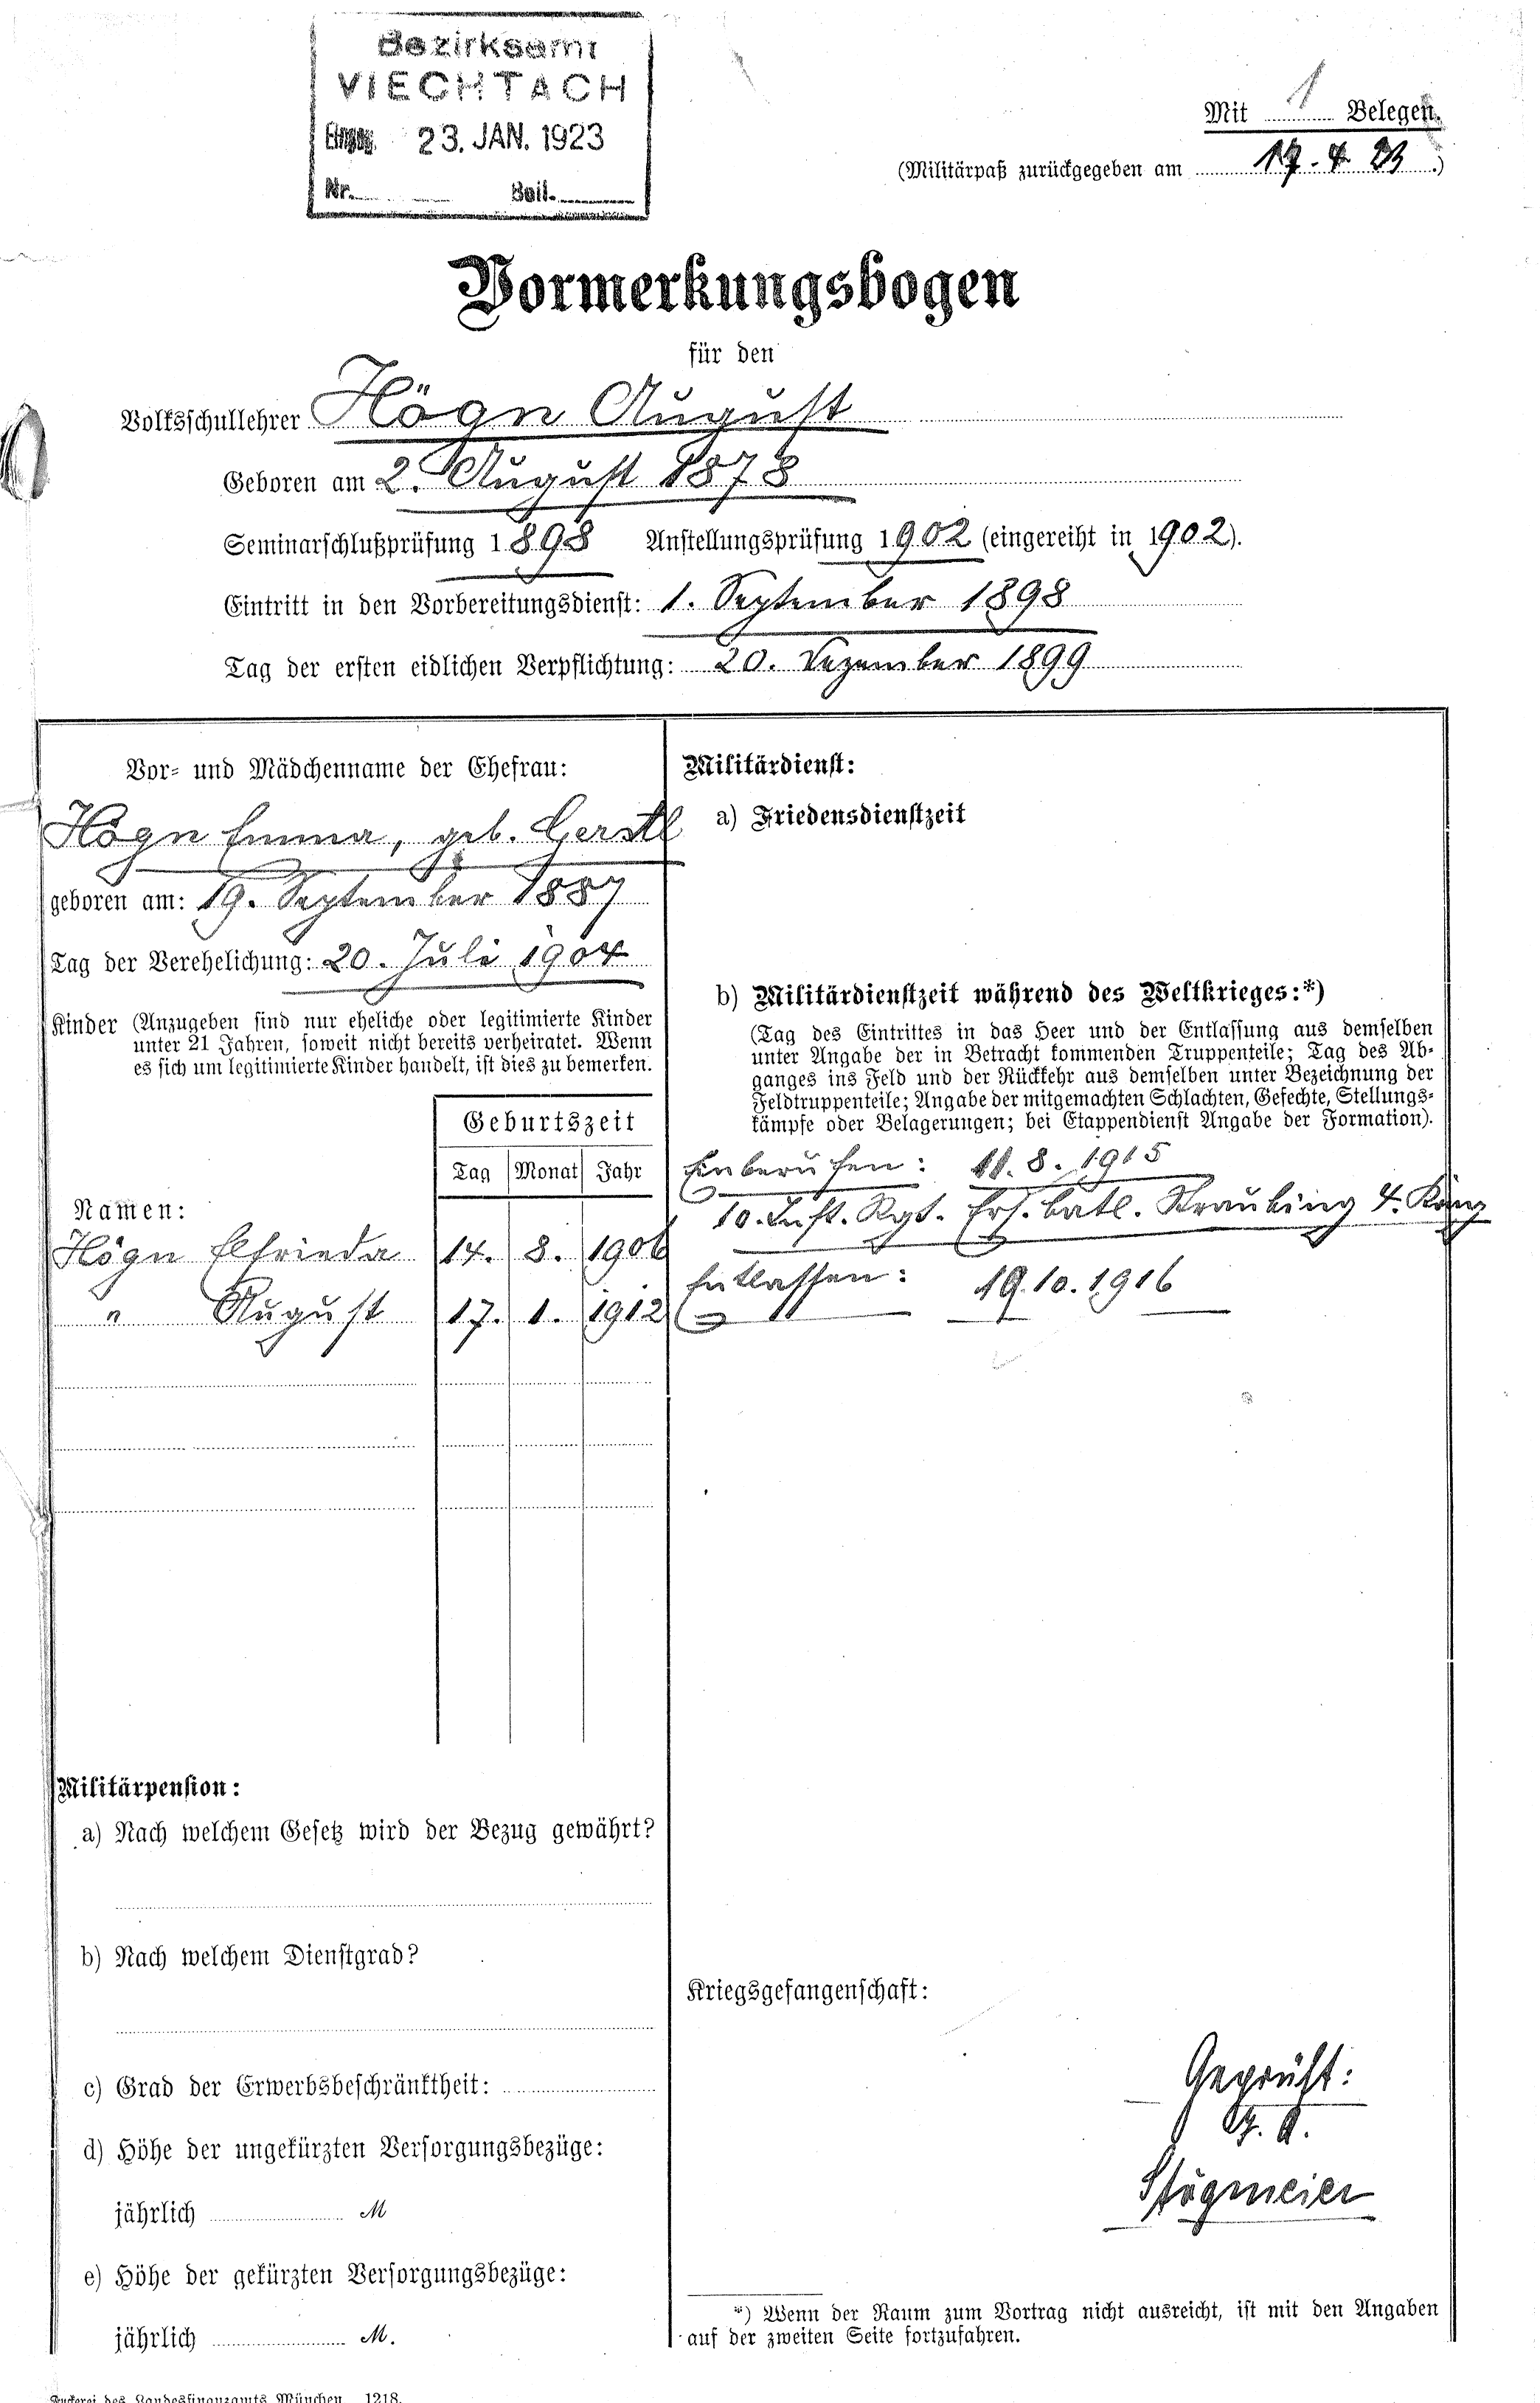 Bezirksamt
VIECHTACH
Eingg. 23. JAN. 1923
Nr. Beil.
Mit 1 Belegen.
(Militärpaß zurückgegeben am 17. 4. 23.)
Vormerkungsbogen
für den
Volksschullehrer Högn August
Geboren am 2. August 1878
Seminarschlußprüfung 1898 Anstellungsprüfung 1902 (eingereiht in 1902).
Eintritt in den Vorbereitungsdienst: 1. September 1898
Tag der ersten eidlichen Verpflichtung: 20. Dezember 1899
Vor- und Mädchenname der Ehefrau:
Högn Emma, geb. Gerstl
geboren am: 19. September 1887
Tag der Verehelichung: 20. Juli 1904
Kinder (Anzugeben sind nur eheliche oder legitimierte Kinder
unter 21 Jahren, soweit nicht bereits verheiratet. Wenn
es sich um legitimierte Kinder handelt, ist dies zu bemerken.
Geburtszeit
Tag Monat Jahr
Namen:
Högn Elfrieda 14. 8. 1906
" August 17. 1. 1912
Militärpension:
a) Nach welchem Gesetz wird der Bezug gewährt?
b) Nach welchem Dienstgrad?
c) Grad der Erwerbsbeschränktheit:
d) Höhe der ungekürzten Versorgungsbezüge:
jährlich M
e) Höhe der gekürzten Versorgungsbezüge:
jährlich M.
Militärdienst:
a) Friedensdienstzeit
b) Militärdienstzeit während des Weltkrieges:*)
(Tag des Eintrittes in das Heer und der Entlassung aus demselben
unter Angabe der in Betracht kommenden Truppenteile; Tag des Ab-
ganges ins Feld und der Rückkehr aus demselben unter Bezeichnung der
Feldtruppenteile; Angabe der mitgemachten Schlachten, Gefechte, Stellungs-
kämpfe oder Belagerungen; bei Etappendienst Angabe der Formation).
Einberufen: 11. 8. 1915
10. Inft. Rgt. Ers. Batl. Straubing 4.
Entlassen: 19. 10. 1916
Kriegsgefangenschaft:
Geprüft:
J. A.
*) Wenn der Raum zum Vortrag nicht ausreicht, ist mit den Angaben
auf der zweiten Seite fortzufahren.
Druckerei des Landesfinanzamts München 1218.